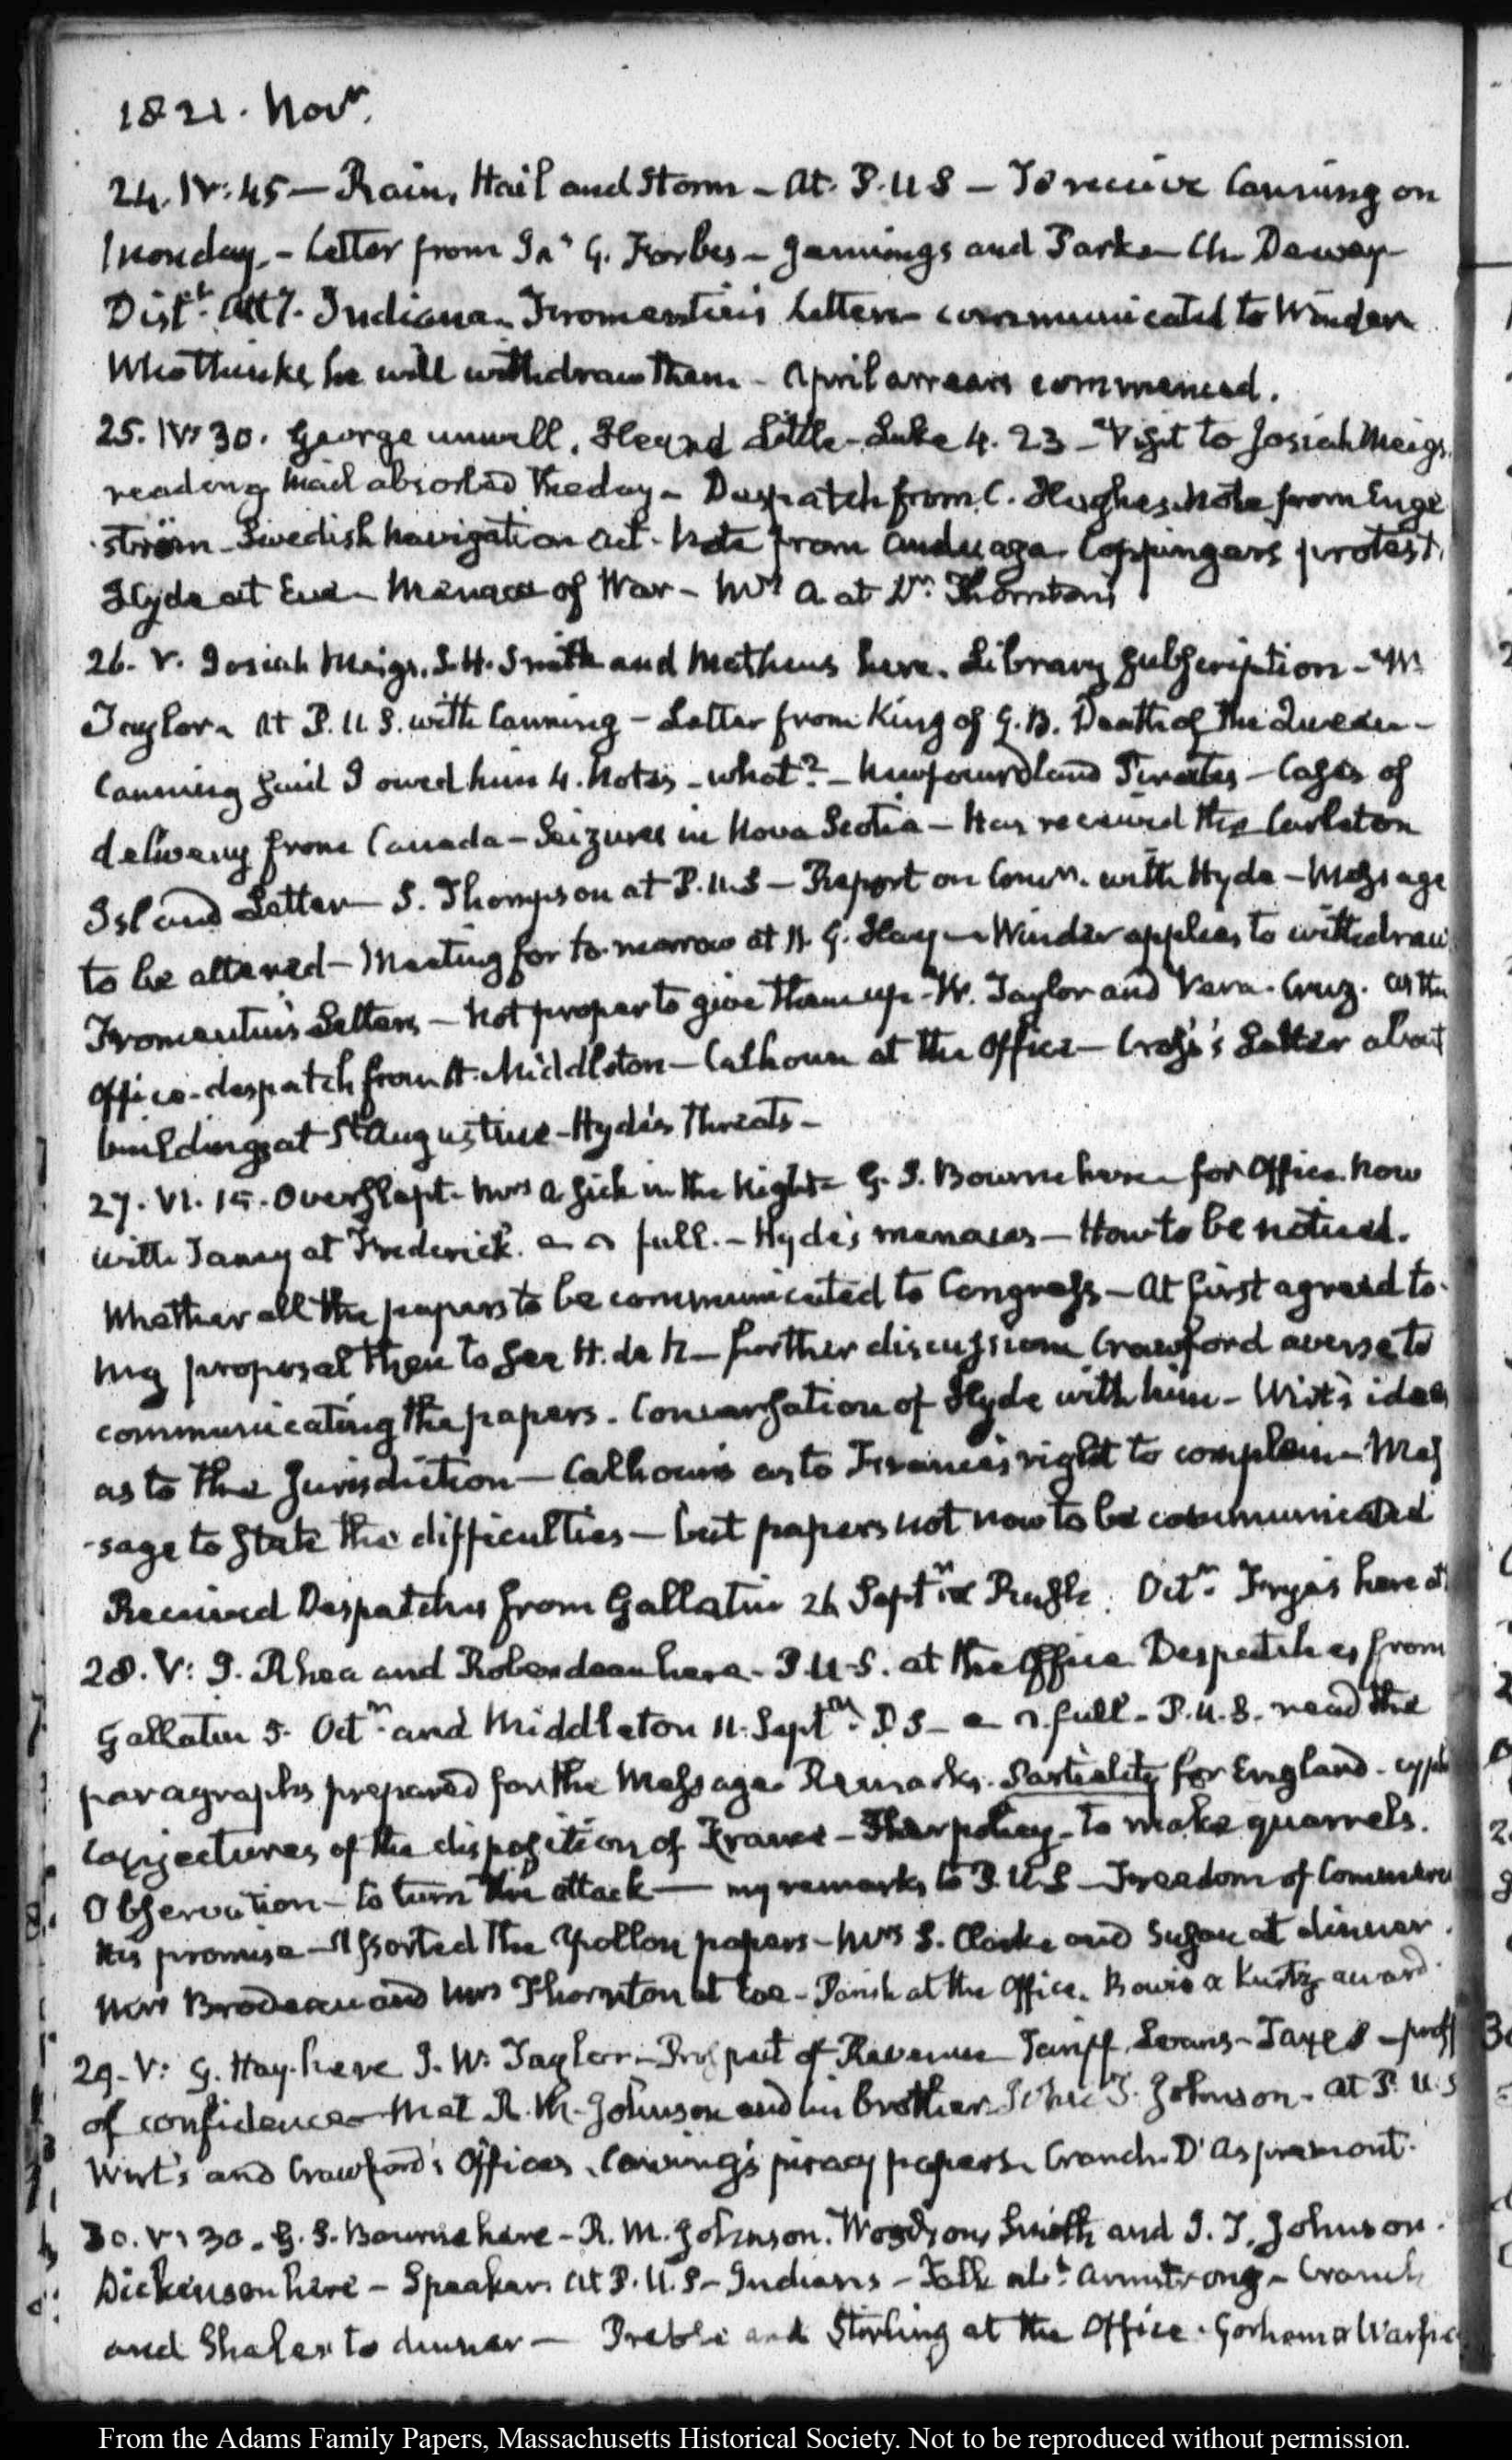 1821. Novr.
24. IV: 45 — Rain, Hail and Storm — At P.U.S — To receive Canning on
Monday. — Letter from G. Forbes — Jennings and Parke — Ch. Dewey
Distt. Atty. Indiana. Fromentin's Letters communicated to Winder
Who thinks he will withdraw them — April arrears commenced.
25. IV: 30. George unwell. Heard Little — Luke 4. 23 — Visit to Josiah Meigs.
reading Mail absorbed the day — Despatch from C. Hughes. Note from Enge
ström — Swedish Navigation Act — Note from Anduaga. Coppingers protest.
Hyde at Eve — Menace of War — Mrs. A. at Dr. Thornton's
26. V. Josiah Meigs, S. H. Smith and Mathews here. Library Subscription —
Taylor. At P.U.S. with Canning — Letter from King of G. B. Death of the Queen —
Canning said I owed him 4. Notes — what? — Newfoundland Pirates — Cases of
delivery from Canada — Seizures in Nova Scotia — Has received the Carleton
Island Letter — S. Thompson at P.U.S — Report on with Hyde — Message
to be altered — Meeting for to-morrow at G. Hay — Winder applies to withdraw
Fromentin's Letters — Not proper to give them up — W. Taylor and Vera-Cruz. At the
Office — despatch from H. Middleton — Calhoun at the Office — Letter about
buildings at St. Augustine — Hyde's Threats —
27. VI. 15. Overslept. Mrs A sick in the Night — G. S. Bourne here — for Office. Now
with Taney at Frederick. full. — Hyde's menaces — How to be noticed.
Whether all the papers to be communicated to Congress — At first agreed to
my proposal then to see H. de N — further discussion Crawford averse to
communicating the papers. Conversation of Hyde with him — Wirt's ideas
as to the Jurisdiction — Calhoun's as to France's right to complain — Mes
-sage to State the difficulties — but papers not now to be communicated
Received Despatches from Gallatin 26 Septr. Rush. Octr. Frye's here
28. V: J. Rhea and here — P.U.S. at the Office Despatches from
Gallatin 5. Octr. and Middleton 11. Septr. full — P.U.S. read the
paragraphs prepared for the Message. Remarks. Partiality for England.
Conjectures of the disposition of France — Their policy — to make quarrels.
Observation — to turn the attack — my remarks to P.U.S — Freedom of Commerce
His promise — Assorted the Apollon papers — Mrs S. Clarke and Susan at dinner.
Mrs Brodeau and Mrs Thornton at tea — Parish at the Office. Kurtz award.
29. V: G. Hay here J. W. Taylor — Prospect of Revenue — Tariff, Loans — Taxes —
of confidence — Met R. M. Johnson and his brother J. Johnson — at P. U.S
Wirt's and Crawford's Offices. Canning's piracy papers. Cranch. D'Aspremont.
30. V: 30. G. S. Bourne here — R. M. Johnson. Woodson, Smith and J. T. Johnson.
Dickenson here — Speaker. At P.U.S — Indians — Talk abt. Armstrong — Cranch
and Shaler to dinner — Preble and Storling at the Office. Gorham &
From the Adams Family Papers, Massachusetts Historical Society. Not to be reproduced without permission.